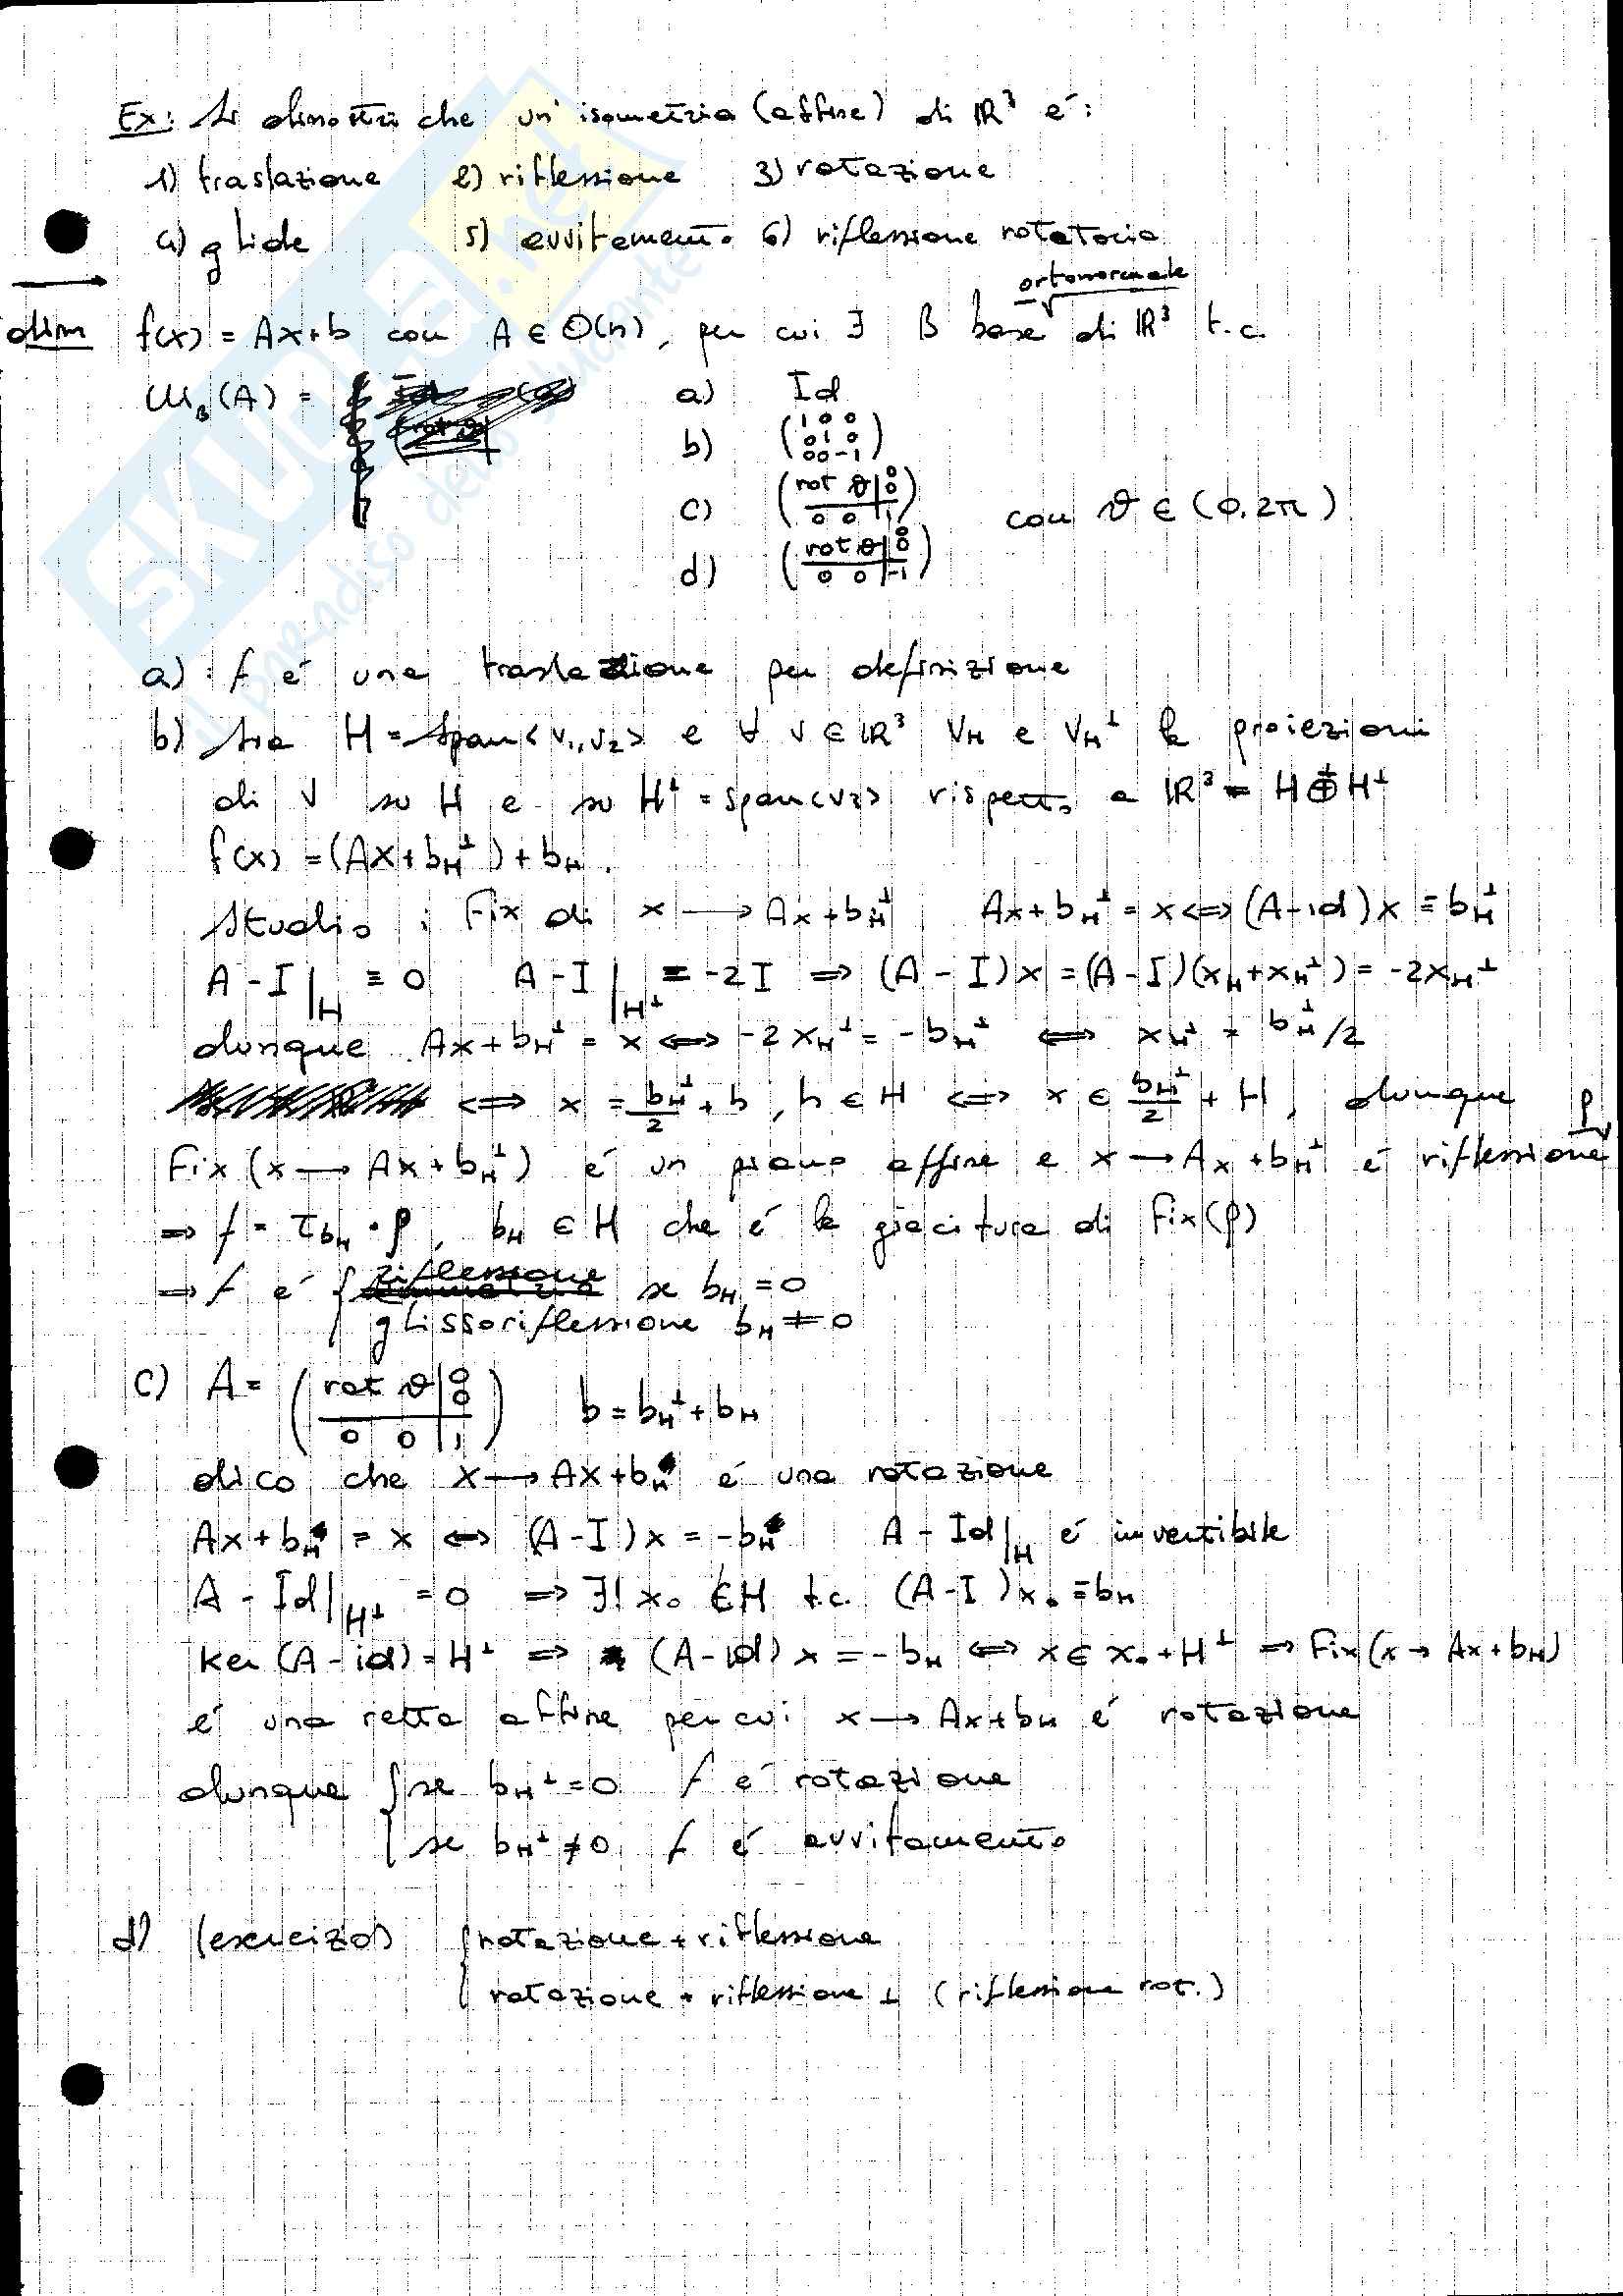 Ex: Si dimostri che un'isometria (affine) di ℝ³ é:
1) traslazione 2) riflessione 3) rotazione
4) glide 5) avvitamento 6) riflessione rotatoria
ortonormale
dim f(x) = Ax+b con A ∈ O(n), per cui ∃ B base di ℝ³ t.c.
M_B(A) = a) Id
b) (1 0 0 / 0 1 0 / 0 0 -1)
c) (rot ϑ | 0 0 / 0 0 | 1) con ϑ ∈ (0,2π)
d) (rot ϑ | 0 0 / 0 0 | -1)
a) : f é una traslazione per definizione
b) Sia H = Span<v₁,v₂> e ∀ v ∈ ℝ³ v_H e v_H^⊥ le proiezioni
di v su H e su H^⊥ = span<v₃> rispetto a ℝ³ = H ⊕ H^⊥
f(x) = (Ax + b_H^⊥) + b_H .
Studio : Fix di x → Ax + b_H^⊥ Ax + b_H^⊥ = x ⟺ (A-id)x = b_H^⊥
A-I|_H ≡ 0 A-I|_H^⊥ = -2I ⟹ (A-I)x = (A-I)(x_H + x_H^⊥) = -2x_H^⊥
dunque Ax + b_H^⊥ = x ⟺ -2x_H^⊥ = -b_H^⊥ ⟺ x_H^⊥ = b_H^⊥/2
⟺ x = b_H^⊥/2 + h , h ∈ H ⟺ x ∈ b_H^⊥/2 + H , dunque
Fix (x → Ax + b_H^⊥) é un piano affine e x → Ax + b_H^⊥ é riflessione ρ
⟹ f = τ_{b_H} ∘ ρ , b_H ∈ H che é la giacitura di Fix(ρ)
⟹ f é { riflessione se b_H = 0
glissoriflessione b_H ≠ 0
c) A = (rot ϑ | 0 0 / 0 0 | 1) b = b_H^⊥ + b_H
dico che x → Ax + b_H é una rotazione
Ax + b_H = x ⟺ (A-I)x = -b_H A-Id|_H é invertibile
A-Id|_H^⊥ = 0 ⟹ ∃! x₀ ∈ H t.c. (A-I)x₀ = b_H
Ker (A-id) = H^⊥ ⟹ (A-id)x = -b_H ⟺ x ∈ x₀ + H^⊥ ⟹ Fix(x → Ax + b_H)
é una retta affine per cui x → Ax + b_H é rotazione
dunque { se b_H^⊥ = 0 f é rotazione
se b_H^⊥ ≠ 0 f é avvitamento
d) (esercizio) { rotazione + riflessione
rotazione + riflessione ⊥ (riflessione rot.)